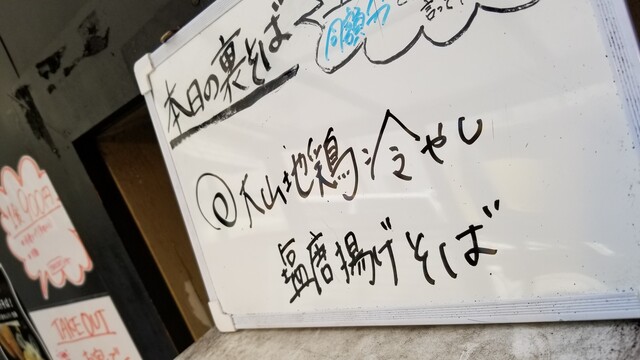 言って
本日の裏そば
@大山地鶏冷やし
塩唐揚げそば
TAKE OUT